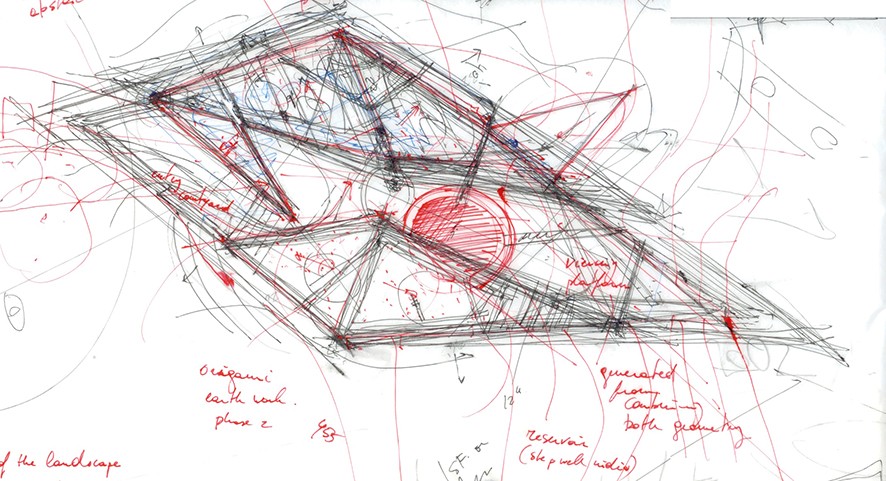 entry
courtyard
viewing
platform
origami
earth work.
phase 2
generated
from
both geometry
reservoir
(stepwell
of the landscape